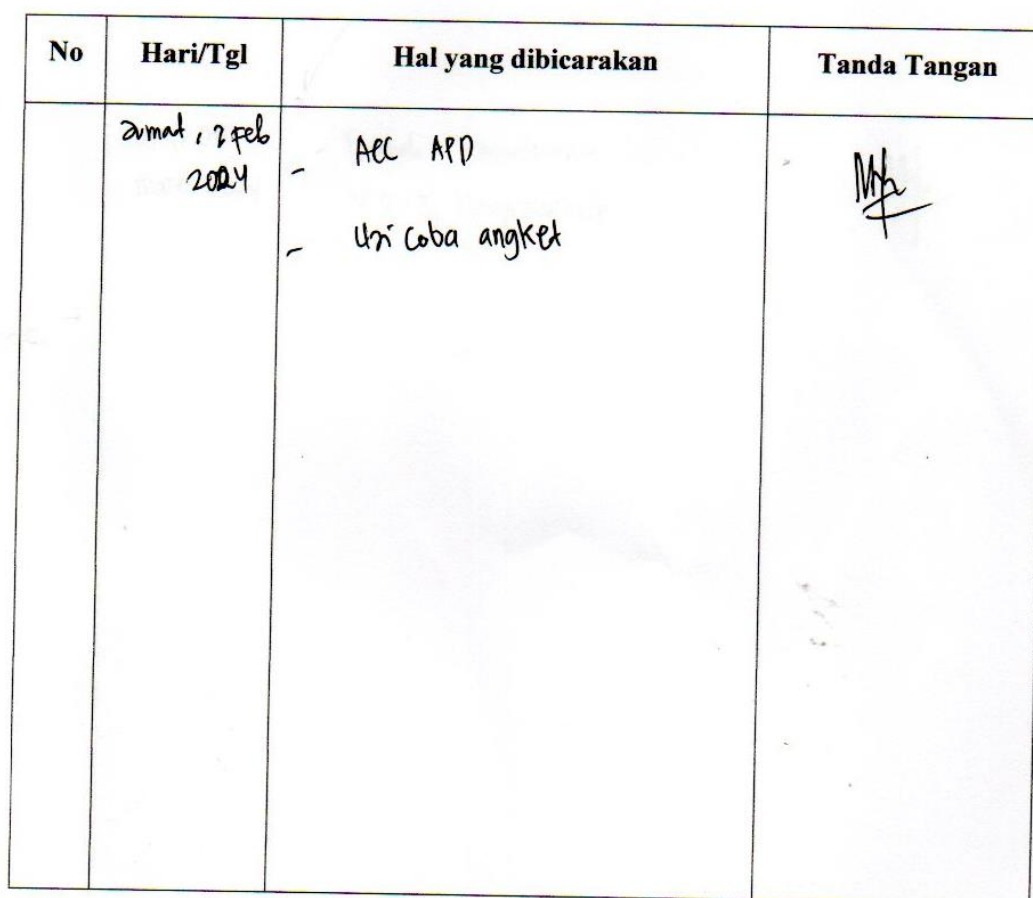 No Hari/Tgl Hal yang dibicarakan Tanda Tangan
Jumat, 2 Feb
2024
- ACC APD
- Uji Coba angket